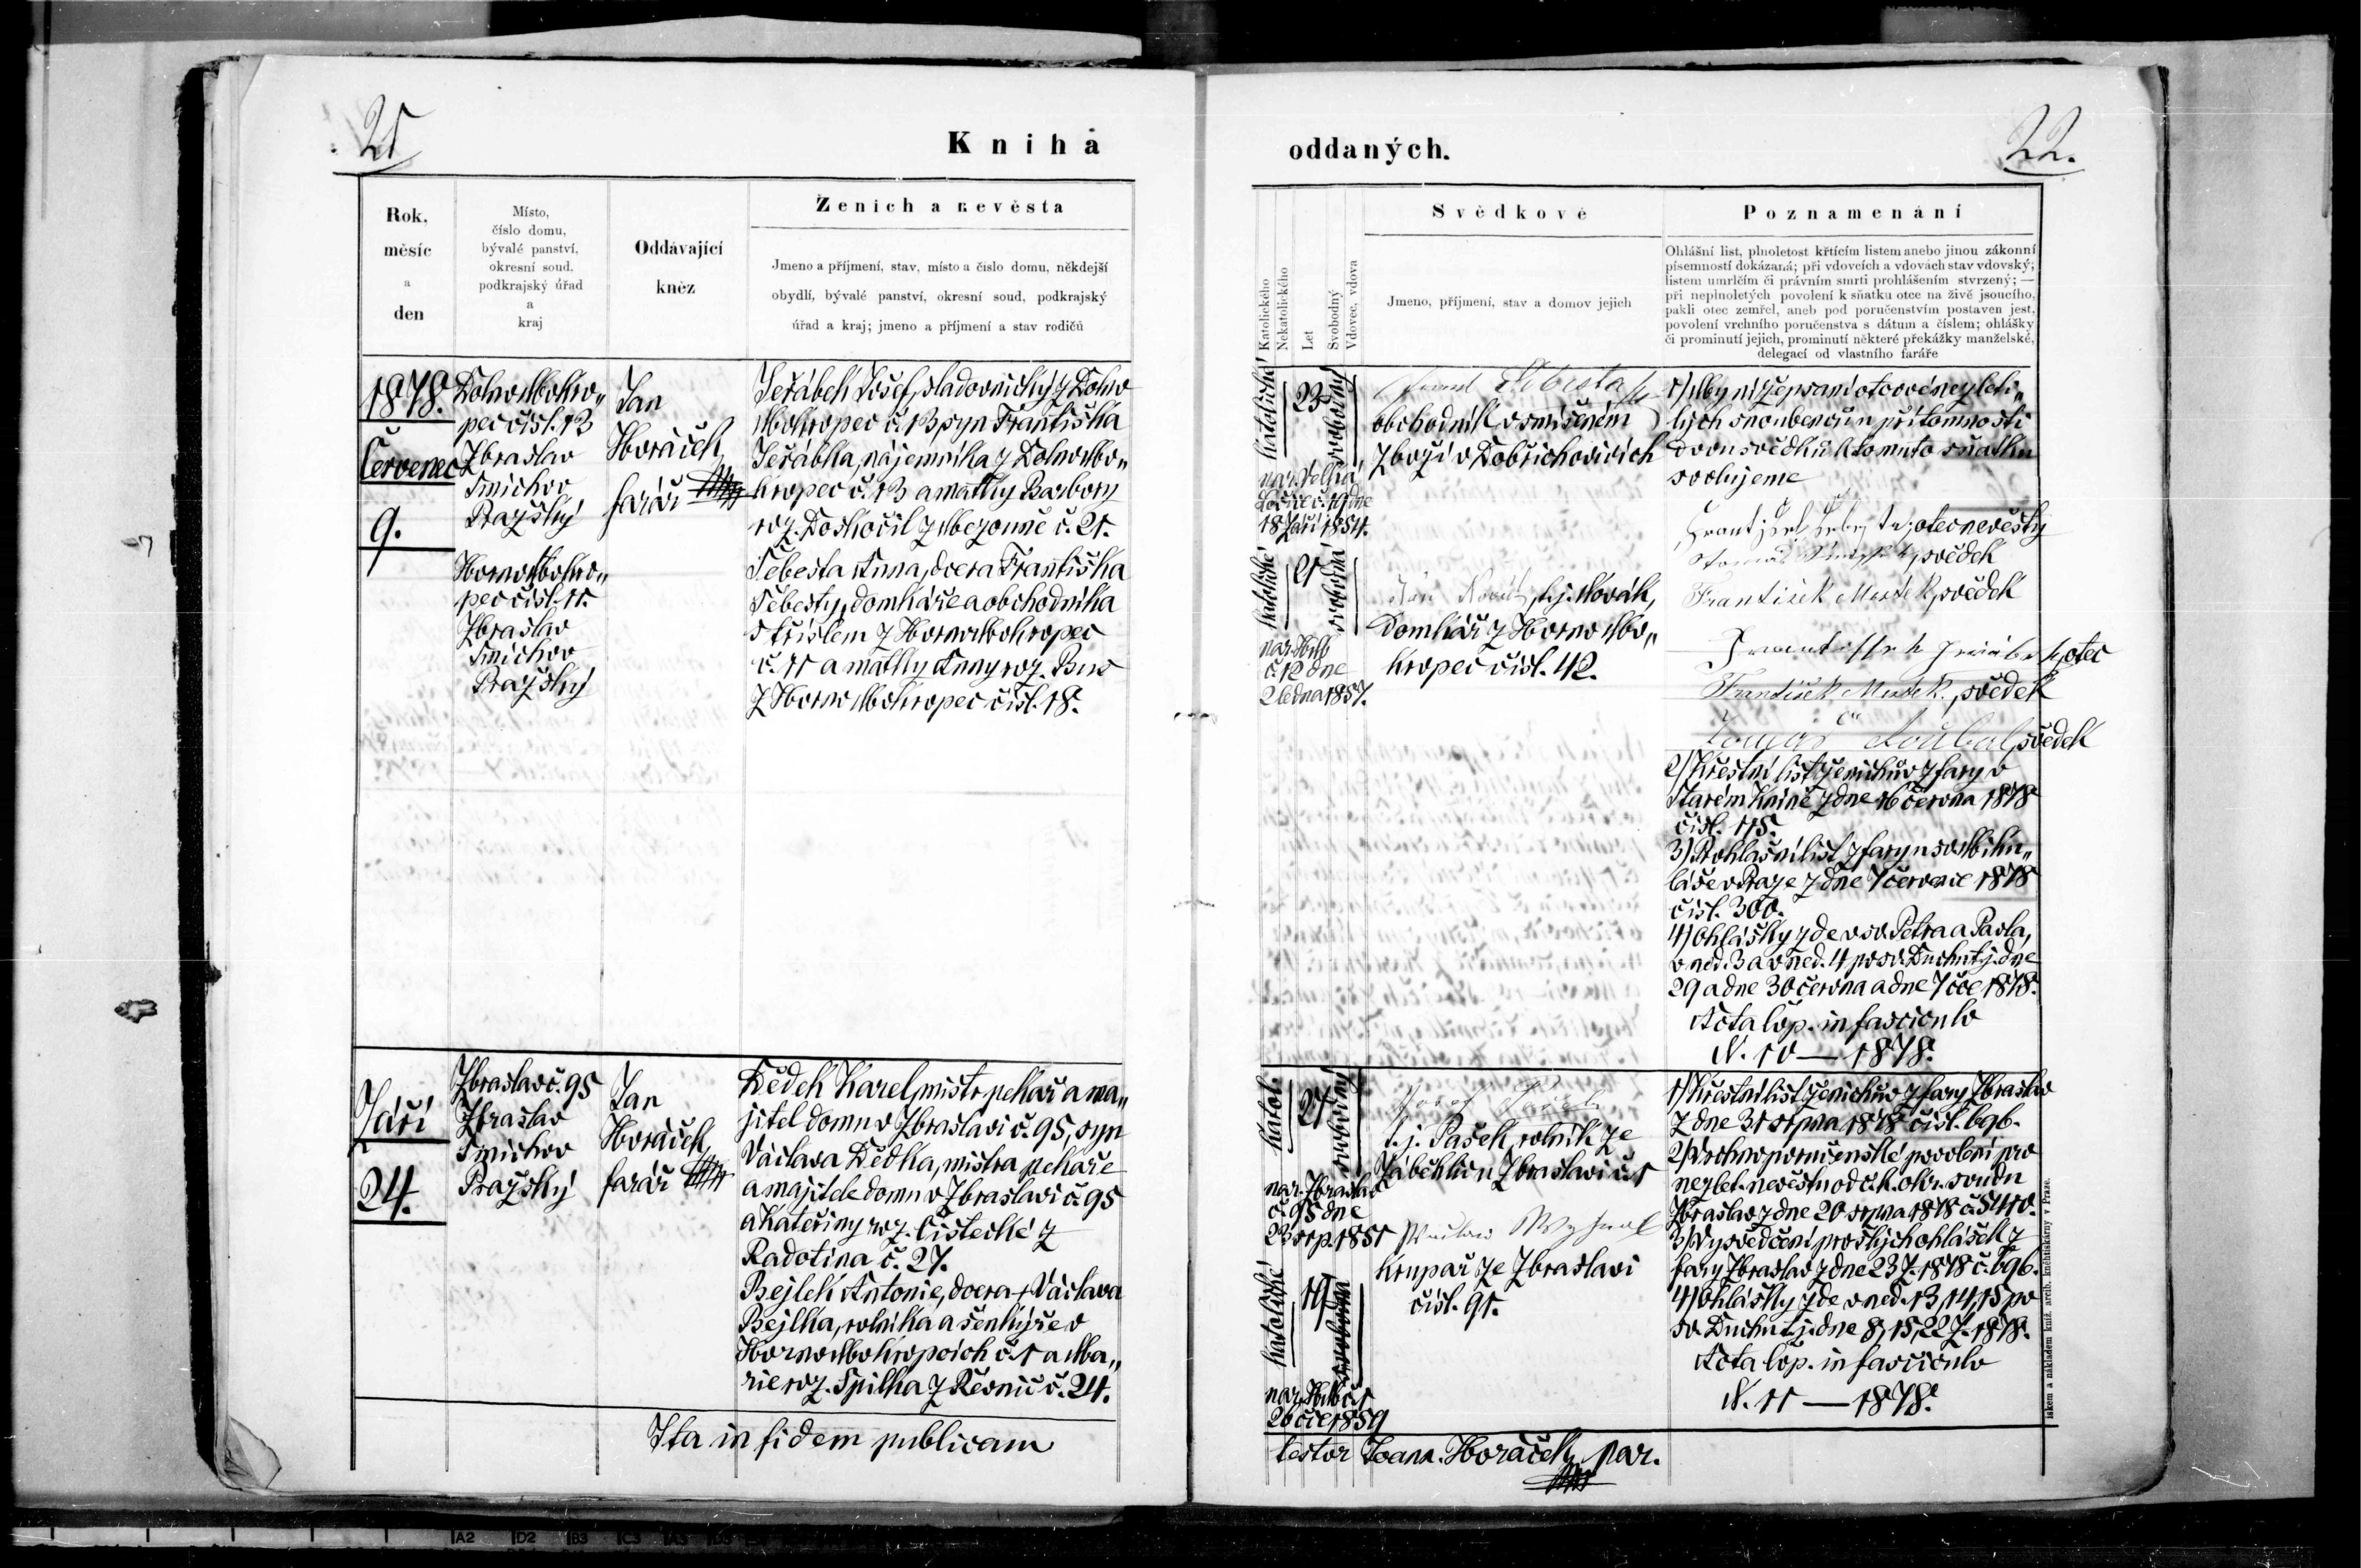 21
Kniha
Rok, měsíc a den
Místo, číslo domu, bývalé panství, okresní soud, podkrajský úřad a kraj
Oddávající kněz
Ženich a nevěsta
Jmeno a příjmení, stav, místo a číslo domu, někdejší
obydlí, bývalé panství, okresní soud, podkrajský
úřad a kraj; jmeno a příjmení a stav rodičů
1878.
Červenec
9.
Dolno Mokro„
pec čísl. 13
Zbraslav
Smíchov
Pražský
Jan
Horáček,
farář
Jeřábek Josef, sladovnický z Dolno
Mokropec č. 13 syn Františka
Jeřábka, nájemníka z Dolno Mo„
kropec č. 13 a matky Barbory
roz. Doskočil z Mezouně č. 21.
Horno Mokro„
pec čísl. 11.
Zbraslav
Smíchov
Pražský
Šebesta Anna, dcera Františka
Šebesty, domkáře a obchodníka
s tříslem z Horno Mokropec
č. 11 a matky Anny roz.
z Horno Mokropec čísl. 18.
Září
24.
Zbraslav č. 95
Zbraslav
Smíchov
Pražský
Jan
Horáček,
farář
Dědek Karel, mistr pekař a ma„
jitel domu v Zbraslavi č. 95, syn
Václava Dědka, mistra pekaře
a majitele domu v Zbraslavi č. 95
a Kateřiny roz. Čistecké z
Radotína č. 27.
Bejlek Antonie, dcera † Václava
Bejlka, rolníka a šenkýře v
Horno Mokropcích č. 1 a Ma„
rie roz. Spilka z Řevnic č. 24.
Ita in fidem publicam
oddaných.
22.
Katolického
Nekatolického
Let
Svobodný
Vdovec, vdova
Svědkové
Jmeno, příjmení, stav a domov jejich
Poznamenání
Ohlášní list, plnoletost křtícím listem anebo jinou zákonní
písemností dokázaná; při vdovcích a vdovách stav vdovský;
listem umrlčím či právním smrti prohlášením stvrzený; —
při neplnoletých povolení k sňatku otce na živě jsoucího,
pakli otec zemřel, aneb pod poručenstvím postaven jest,
povolení vrchního poručenstva s dátum a číslem; ohlášky
či prominutí jejich, prominutí některé překážky manželské,
delegací od vlastního faráře
katolické
23
svobodný
č. 19 dne
18 Září 1854.
Šebesta
obchodník v smíšeném
zboží v Dobřichovicích
katolické
21
svobodná
nar. HMb
č. 12 dne
2 ledna 1857.
t.j. Novák,
Domkář z Horno Mo„
kropec čísl. 42.
1) My níže psaní otcové nezleti„
lých snoubenců u přítomnosti
dvou svědků k tomuto sňatku
svolujeme
otec nevěsty
svědek
František Mastek, svědek
otec
František Mastek, svědek
Tomáš Loubal, svědek
2) Křestní list ženichův z fary v
Starém Kníně z dne 16 června 1878
čísl. 115.
3) Prohlašní list z fary u sv. Miku„
láše v Praze z dne 7 července 1878
čísl. 300.
4) Ohlášky zde v sv. Petra a Pavla,
v ned. 3 a v ned. 4 po sv. Duchu t.j. dne
29 a dne 30 června a dne 7 čce 1878.
Acta cop. in fasciculo
N. 10 — 1878.
katol.
27
svobodný
nar. Zbraslav
č. 95 dne
23 srp. 1851
t.j. Pašek, rolník ze
Záběhlic u Zbraslavi č. 1
katolické
19
svobodná
nar. HMb č. 1
26 čce 1859
krupař ze Zbraslavi
čísl. 91.
1) Křestní list ženichův z fary Zbraslav
z dne 31 srpna 1878 čísl. 696.
2) Vrchnoporučenské povolení pro
nezlet. nevěstu od c.k. okr. soudu
Zbraslav z dne 20 srpna 1878 č. 5410.
3) Vysvědčení prošlých ohlášek z
fary Zbraslav z dne 23 7. 1878 č. 696.
4) Ohlášky zde v ned. 13, 14, 15 po
sv. Duchu t.j. dne 8, 15, 22 7. 1878.
Acta cop. in fasciculo
N. 11 — 1878.
testor Joann. Horáček, par.
A2 D2 B3 C3 A3